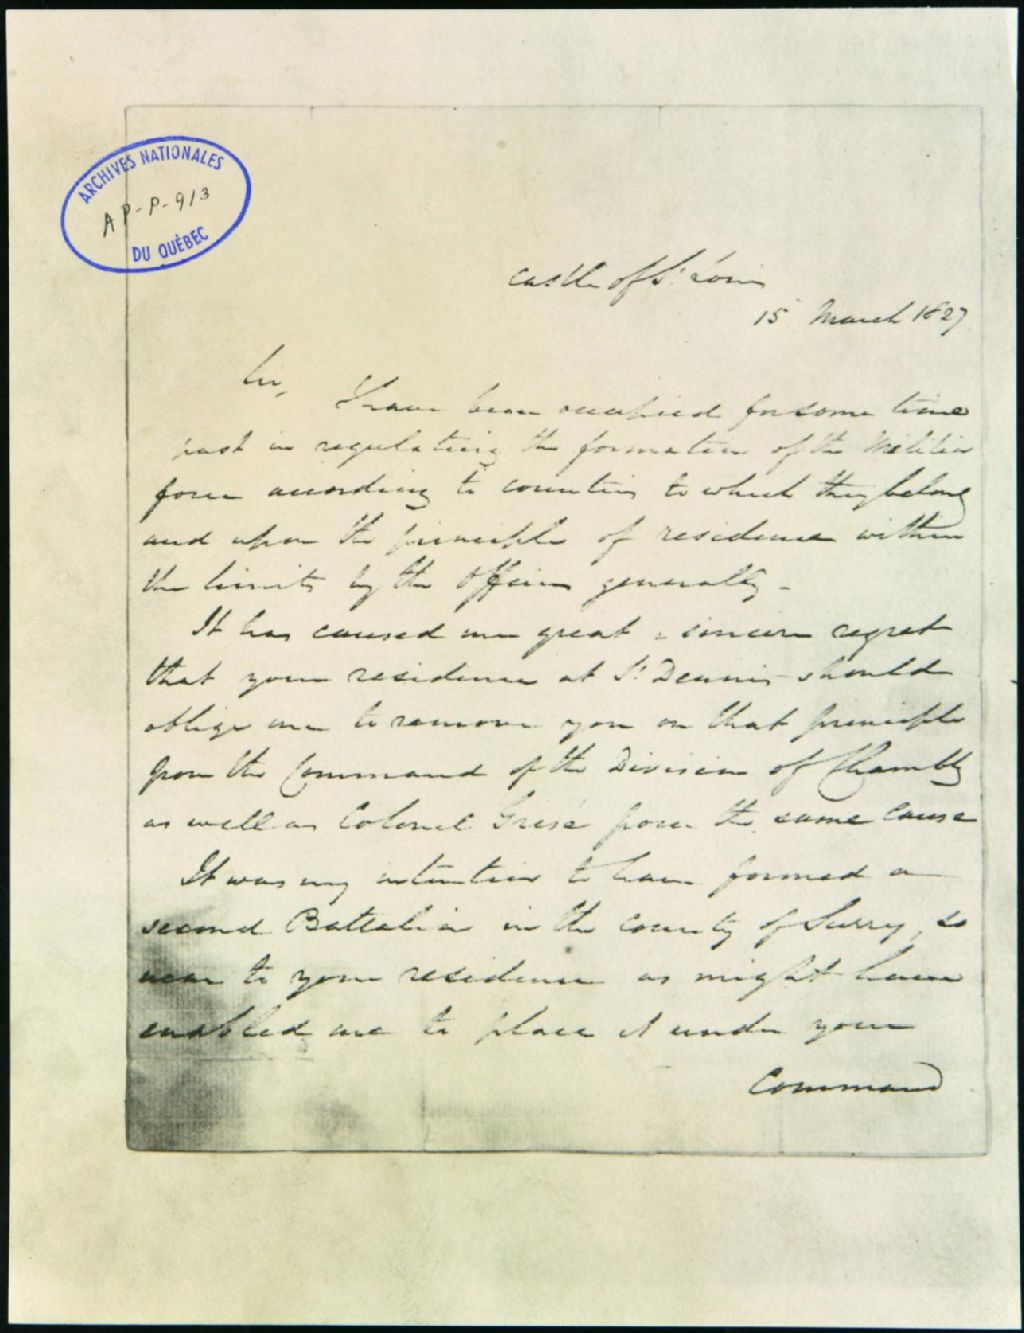 ARCHIVES NATIONALES
AP-P-913
DU QUÉBEC
Castle of St. Louis
15 March 1827
Sir,
I have been occupied for some time
past in regulating the formation of the Militia
force according to counties to which they belong
and upon the principle of residence within
the limits by the Officers generally -
It has caused me great & sincere regret
that your residence at St. Dennis should
oblige me to remove you on that principle
from the Command of the Division of Chambly
as well as Colonel Grisé from the same cause
It was my intention to have formed a
second Battalion in the County of Surry, so
near to your residence as might have
enabled me to place it under your
Command